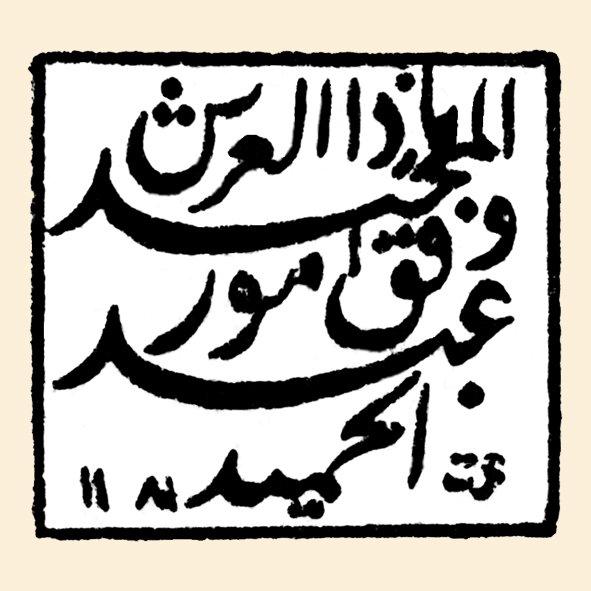 يا ذا العرش
المجيد
وفق امور
عبد
الحميد